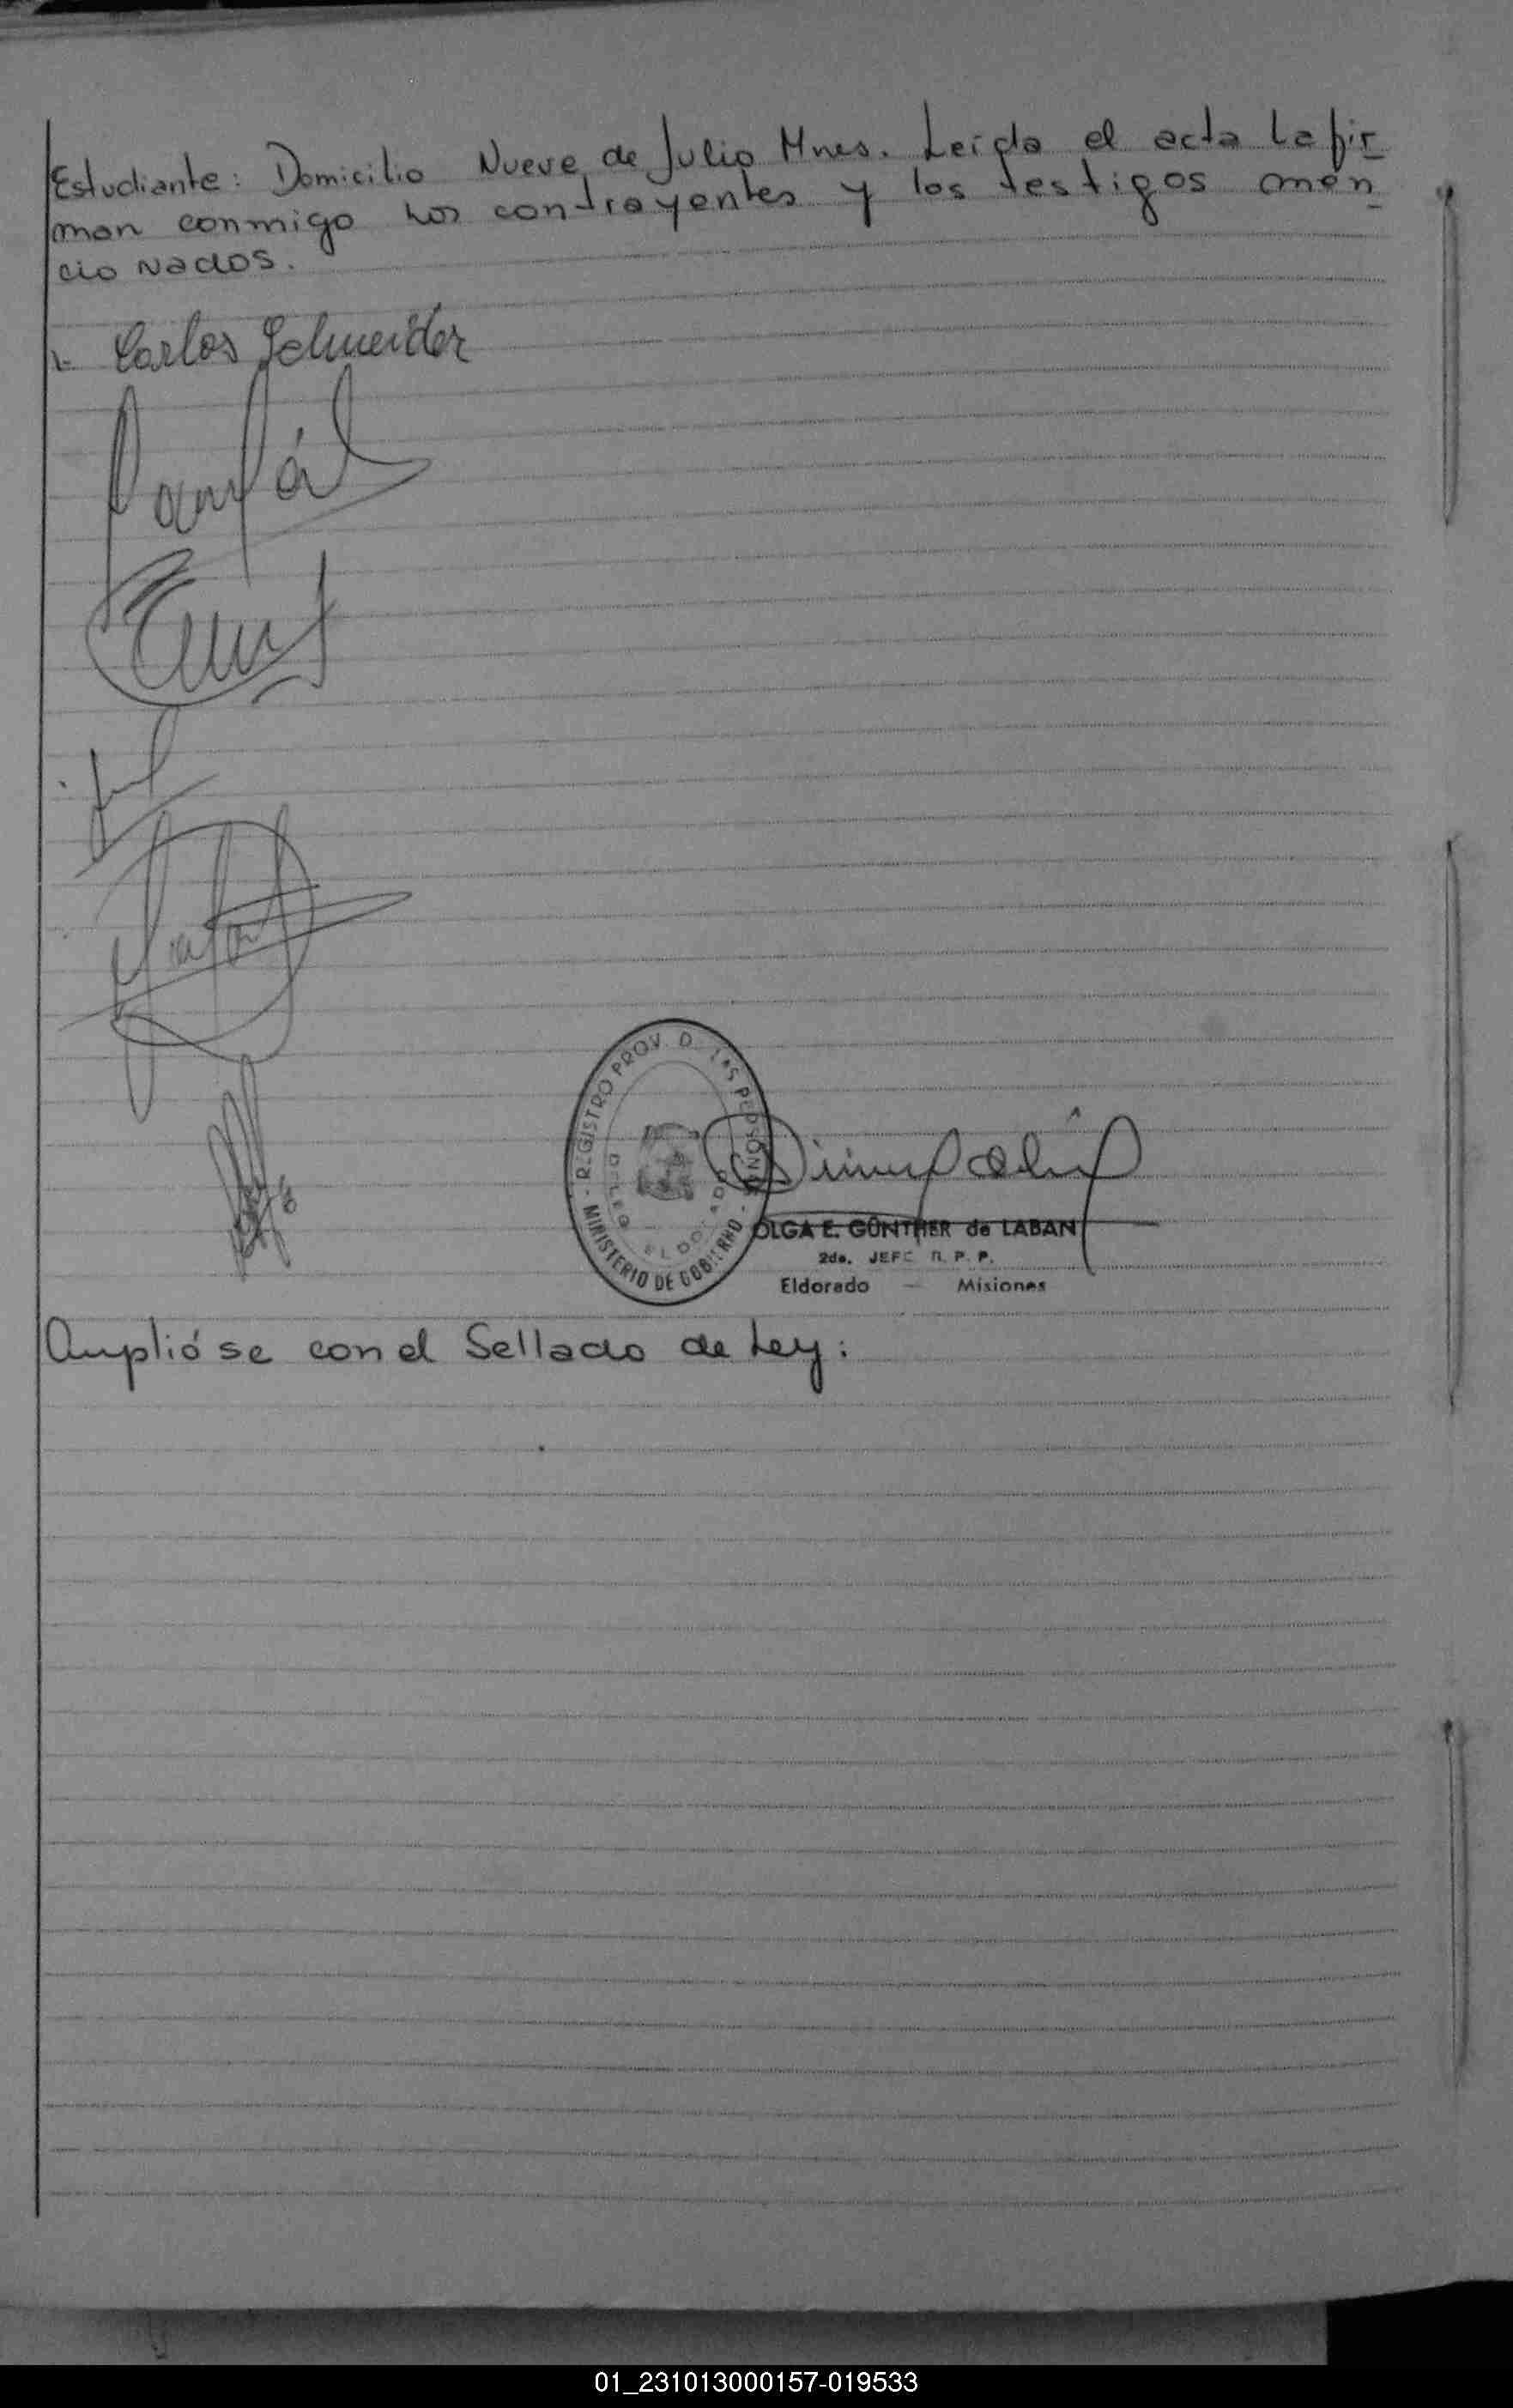 Estudiante: Domicilio Nueve de Julio Mnes. Leída el acta la fir
man conmigo los contrayentes y los testigos men
cionados.
Carlos Schneider
REGISTRO PROV. D. LAS PERSONAS
DELEG
ELDORADO
MINISTERIO DE GOBIERNO
OLGA E. GÜNTHER de LABAN
2da. JEFE R. P. P.
Eldorado — Misiones
Amplióse con el Sellado de Ley:
01_231013000157-019533